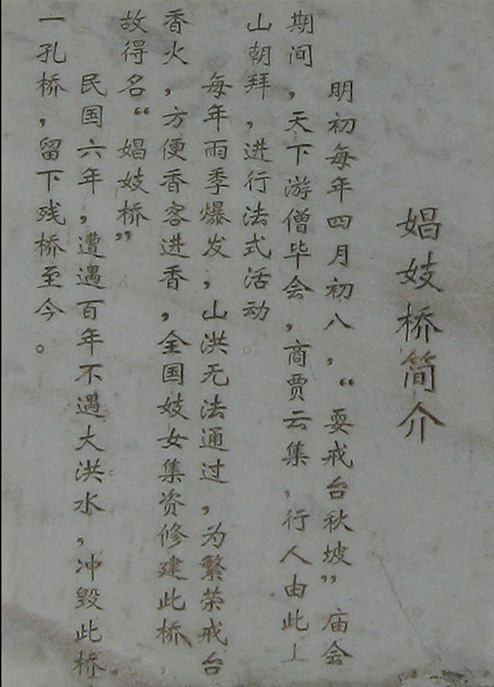 娼妓桥简介
明初每年四月初八，“耍戒台秋坡”庙会
期间，天下游僧毕会，商贾云集，行人由此上
山朝拜，进行法式活动。
每年雨季爆发，山洪无法通过，为繁荣戒台
香火，方便香客进香，全国妓女集资修建此桥，
故得名“娼妓桥”
民国六年，遭遇百年不遇大洪水，冲毁此桥，
一孔桥，留下残桥至今。